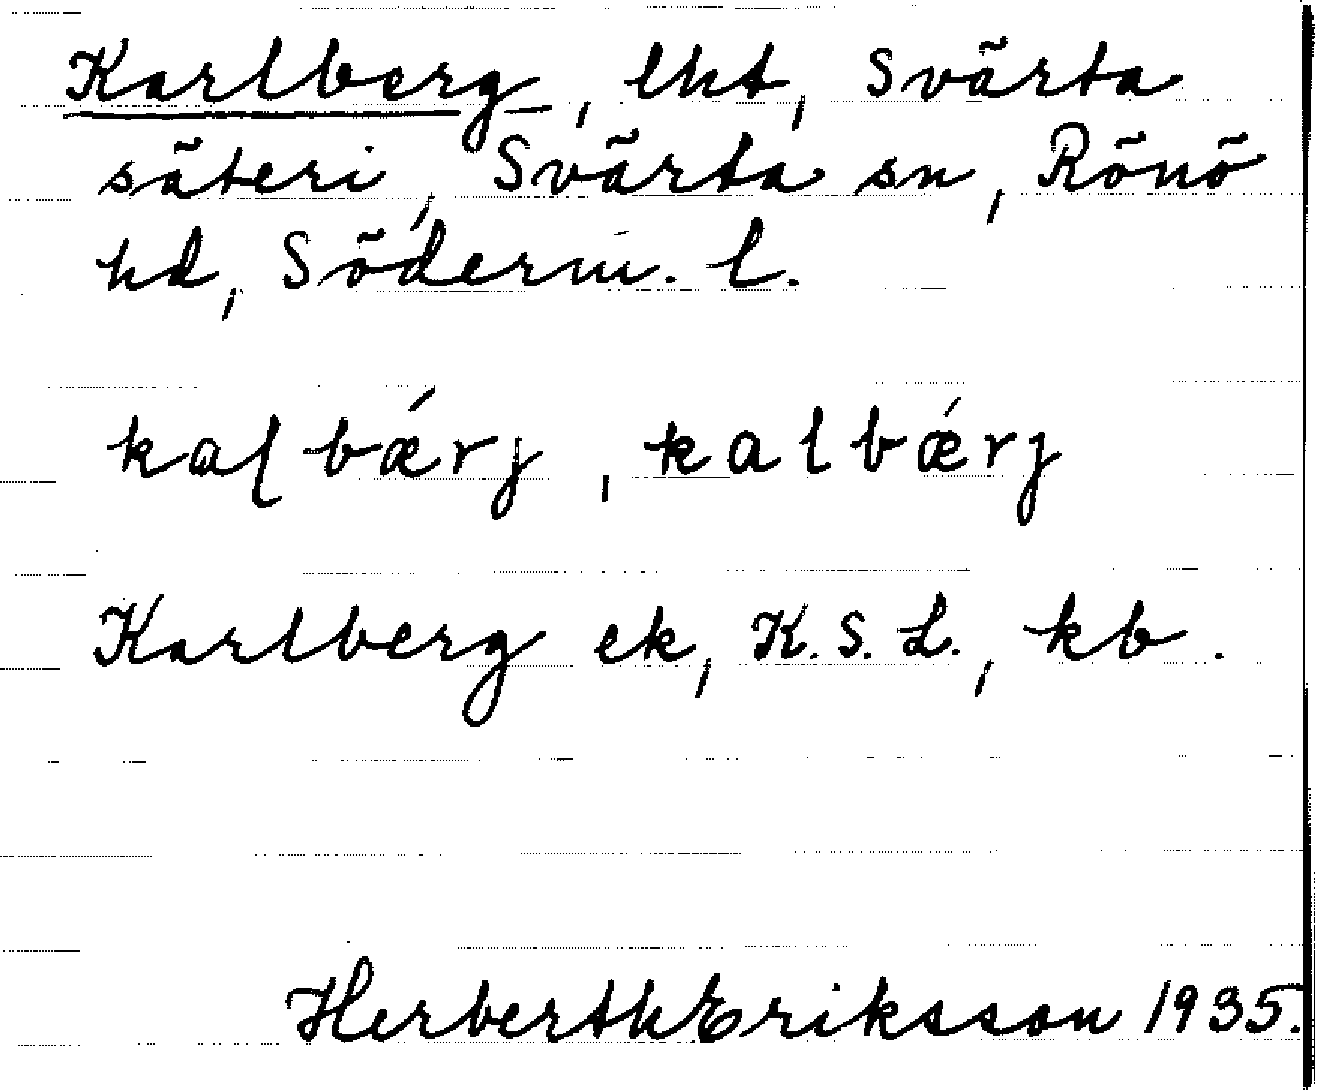 Karlberg, lht, Svärta
säteri, Svärta sn, Rönö
hd, Söderm. l.
kaɭbǽrj, kalbǽrj
Karlberg ek, K.S.L., kb.
Herberth Eriksson 1935.